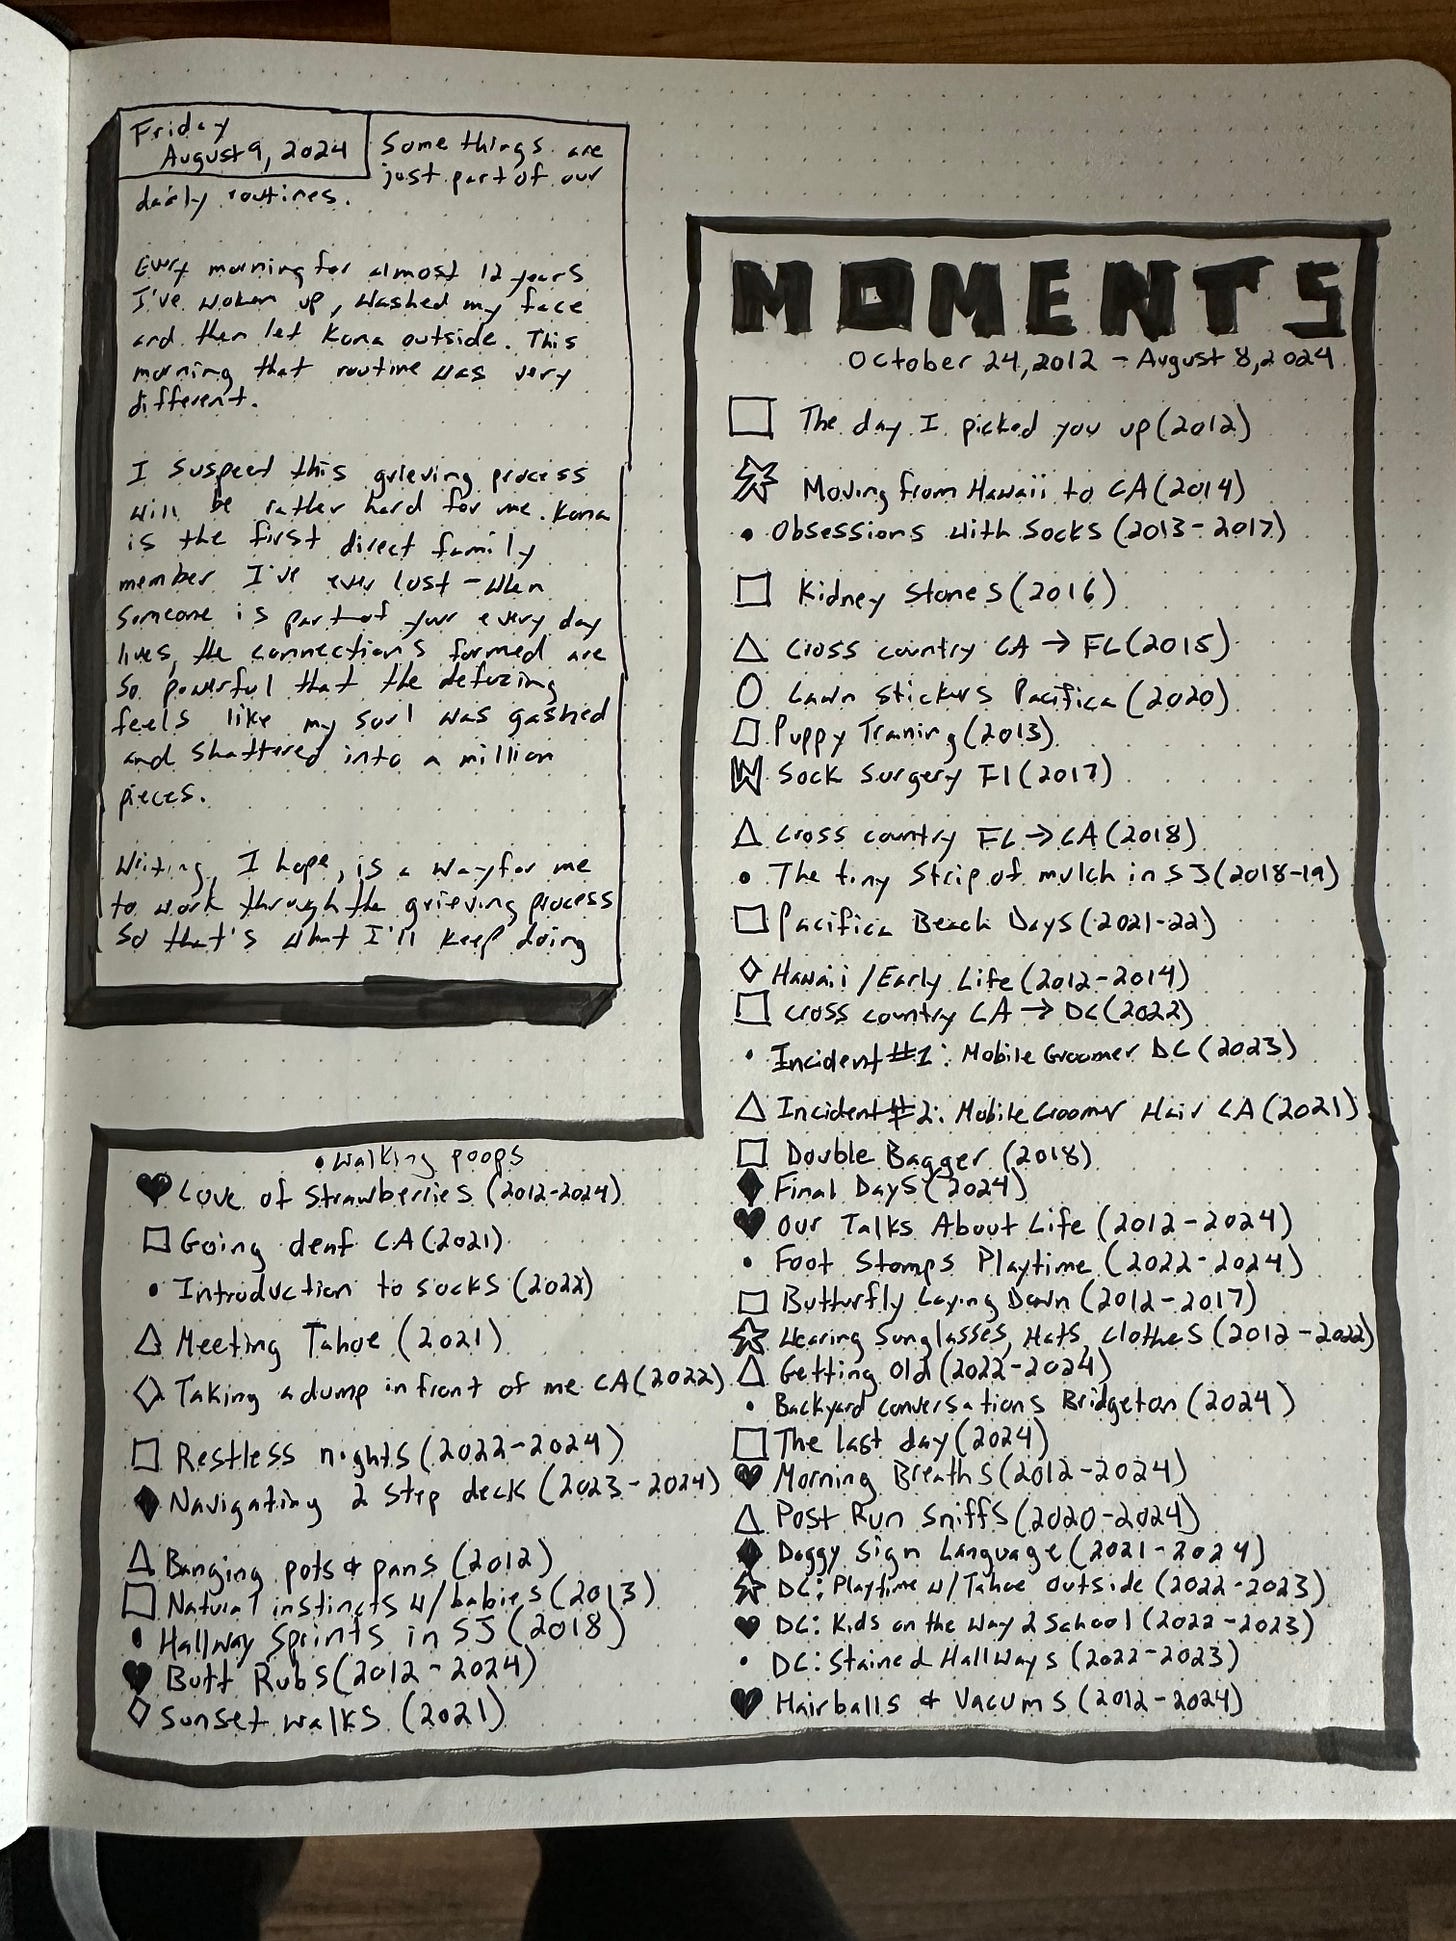 Friday
August 9, 2024
Some things are
just part of our
daily routines.
Every morning for almost 12 years
I've woken up, washed my face
and then let Kona outside. This
morning that routine was very
different.
I suspect this grieving process
will be rather hard for me. Kona
is the first direct family
member I've ever lost - when
someone is part of your every day
lives, the connections formed are
so powerful that the defuzing
feels like my soul was gashed
and shattered into a million
pieces.
Writing, I hope, is a way for me
to work through the grieving process
so that's what I'll keep doing
MOMENTS
October 24, 2012 - August 8, 2024
The day I picked you up (2012)
Moving from Hawaii to CA (2014)
• Obsessions with Socks (2013-2017)
Kidney Stones (2016)
Cross country CA → FL (2015)
Lawn Stickers Pacifica (2020)
Puppy Training (2013)
Sock Surgery Fl (2017)
Cross country FL → CA (2018)
• The tiny Strip of mulch in SJ (2018-19)
Pacifica Beach Days (2021-22)
Hawaii / Early Life (2012-2014)
Cross country CA → DC (2022)
• Incident #1: Mobile Groomer DC (2023)
Incident #2: Mobile Groomer Hair CA (2021)
Double Bagger (2018)
Final Days (2024)
♥ Our Talks About Life (2012-2024)
• Foot Stomps Playtime (2022-2024)
Butterfly Laying Down (2012-2017)
Wearing Sunglasses, Hats, Clothes (2012-2022)
Getting Old (2022-2024)
• Backyard conversations Bridgeton (2024)
The last day (2024)
♥ Morning Breaths (2012-2024)
Post Run Sniffs (2020-2024)
Doggy Sign Language (2021-2024)
DC: Playtime w/ Tahoe Outside (2022-2023)
♥ DC: Kids on the Way 2 School (2022-2023)
• DC: Stained Hallways (2022-2023)
♥ Hairballs & Vacums (2012-2024)
• Walking poops
♥ Love of Strawberries (2012-2024)
Going deaf CA (2021)
• Introduction to socks
Meeting Tahoe (2021)
Taking a dump in front of me CA (2022)
Restless nights (2022-2024)
Navigating 2 Step deck (2023-2024)
Banging pots & pans (2012)
Natural instincts w/ babies (2013)
• Hallway Sprints in SJ (2018)
♥ Butt Rubs (2012-2024)
Sunset walks (2021)